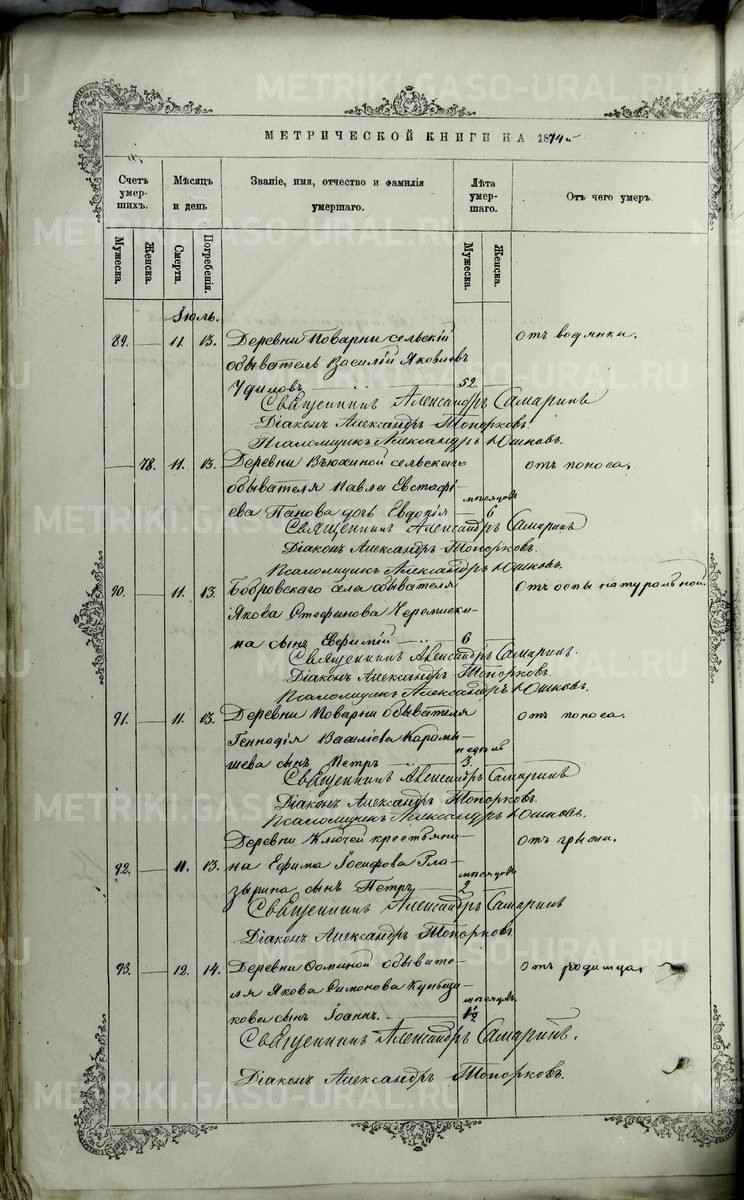 МЕТРИЧЕСКОЙ КНИГИ НА 1874 г.
Счетъ умер-шихъ. Мѣсяцъ и день Званіе, имя, отчество и фамилія умершаго. Лѣта умер-шаго. Отъ чего умеръ.
Мужеска. Женска. Смерти. Погребенія. Мужеска. Женска.
Іюль.
89. — 11. 13. Деревни Поварни сельскій Отъ водянки.
обыватель Василій Яковлевъ
52.
Священникъ Александръ Самаринъ
Діаконъ Александръ Топорковъ.
Псаломщикъ Александръ Юшковъ.
— 78. 11. 13. Деревни Вьюхиной сельскаго отъ поноса.
обывателя Павла Евстафі-
ева Панова дочь Евдокія — мѣсяцовъ 6
Священникъ Александръ Самаринъ
Діаконъ Александръ Топорковъ.
Псаломщикъ Александръ Юшковъ.
90. — 11. 13. Бобровскаго села обывателя Отъ оспы натуральной.
Якова Стефанова Черемиски-
на сынъ Евфимій — 6
Священникъ Александръ Самаринъ.
Діаконъ Александръ Топорковъ.
Псаломщикъ Александръ Юшковъ.
91. — 11. 13. Деревни Поварни обывателя отъ поноса.
Геннодія Василіева Карамы-
шева сынъ Петръ — недѣль 3.
Священникъ Александръ Самаринъ
Діаконъ Александръ Топорковъ.
Псаломщикъ Александръ Юшковъ.
Деревни Ключей крестьяни- Отъ грыжи.
92. — 11. 13. на Ефима Іосифова Гла-
зырина сынъ Петръ — мѣсяцовъ 2
Священникъ Александръ Самаринъ
Діаконъ Александръ Топорковъ
93. — 12. 14. Деревни Ѳоминой обывате- Отъ родимца.
ля Якова Симонова
кова сынъ Іоаннъ. — мѣсяцъ. 1½
Священникъ Александръ Самаринъ.
Діаконъ Александръ Топорковъ.
METRIKI.GASO-URAL.RU